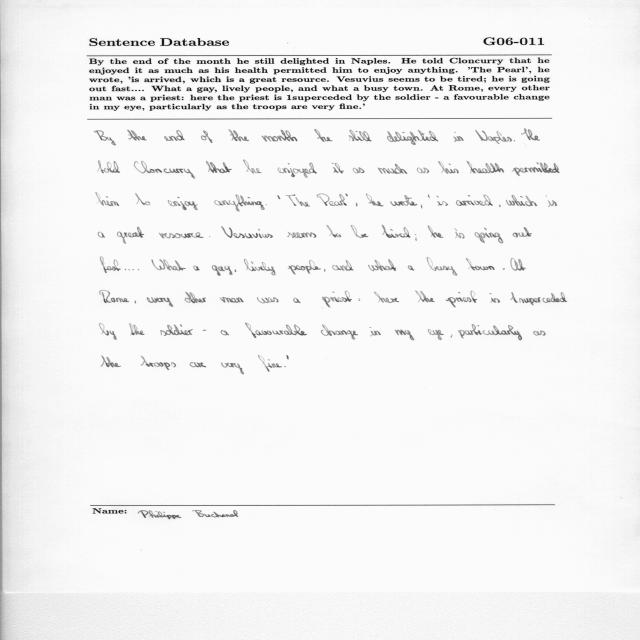 Sentence Database G06-011
By the end of the month he still delighted in Naples. He told Cloncurry that he
enjoyed it as much as his health permitted him to enjoy anything. 'The Pearl', he
wrote, 'is arrived, which is a great resource. Vesuvius seems to be tired; he is going
out fast.... What a gay, lively people, and what a busy town. At Rome, every other
man was a priest: here the priest is 1superceded by the soldier - a favourable change
in my eye, particularly as the troops are very fine.'
By the end of the month he still delighted in Naples. He
told Cloncurry that he enjoyed it as much as his health permitted
him to enjoy anything. 'The Pearl', he wrote, 'is arrived, which is
a great resource. Vesuvius seems to be tired; he is going out
fast.... What a gay, lively people, and what a busy town. At
Rome, every other man was a priest: here the priest is 1superceded
by the soldier - a favourable change in my eye, particularly as
the troops are very fine.'
Name: Philippe